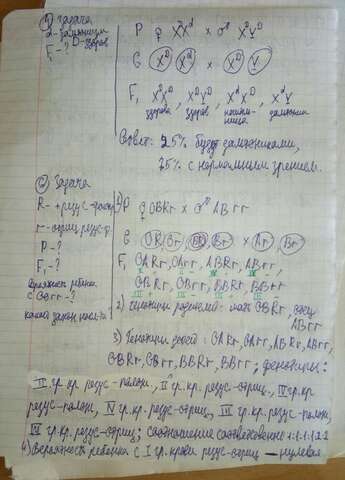 ① Задача
d - дальтонизм
D - здоров
F₁ - ?
P ♀ XᴰXᵈ × ♂ XᴰY
G Xᴰ Xᵈ Xᴰ Y
F₁ XᴰXᴰ, XᴰY, XᴰXᵈ, XᵈY
здорова здоров носительница дальтоник
Ответ: 25% будут дальтониками,
75% с нормальным зрением.
② Задача
R - + резус-фактор
r - отриц. резус-ф.
P - ?
F₁ - ?
Вероятность ребенка
с OOrr - ?
какой закон
1) P ♀ OBRr × ♂ ABrr
G OR Or BR Br × Ar Br
F₁ OARr, OArr, ABRr, ABrr,
OBRr, OBrr, BBRr, BBrr
2) Генотипы родителей - мать OBRr, отец
ABrr
3) Генотипы детей: OARr, OArr, ABRr, ABrr,
OBRr, OBrr, BBRr, BBrr; фенотипы:
II гр. кр. резус-полож., II гр. кр. резус-отриц., IV гр. кр.
резус-полож., IV гр. кр. резус-отриц., III гр. кр. резус-полож.,
III гр. кр. резус-отриц; соотношение соответственно 1:1:1:1:2:2
4) Вероятность ребенка с I гр. крови резус-отриц — нулевая